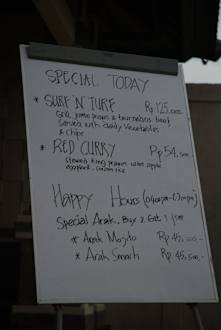 SPECIAL TODAY
* SURF N' TURF Rp 125.000.-
Grill jumbo prawns & tournedos beef
Served with daily vegetables
& chips
* RED CURRY Rp 54.500
steamed king prawns with apple
eggplant,
Happy Hours
Special Arak. Buy 2 Get 1 free
* Arak Mojito Rp 45.500.-
* Arak Smash Rp 45.500.-